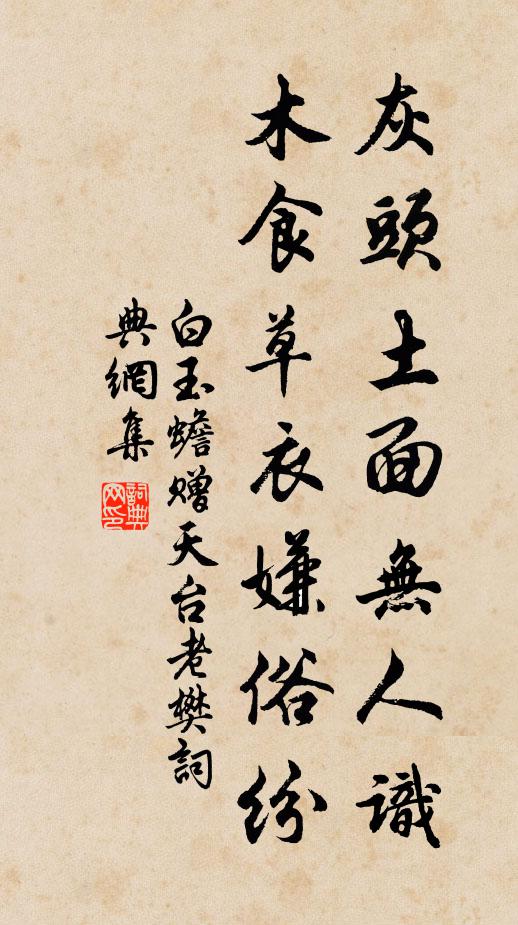 灰頭土面無人識
木食草衣嫌俗紛
白玉蟾贈天台老樊詞
典網集
詞典網印